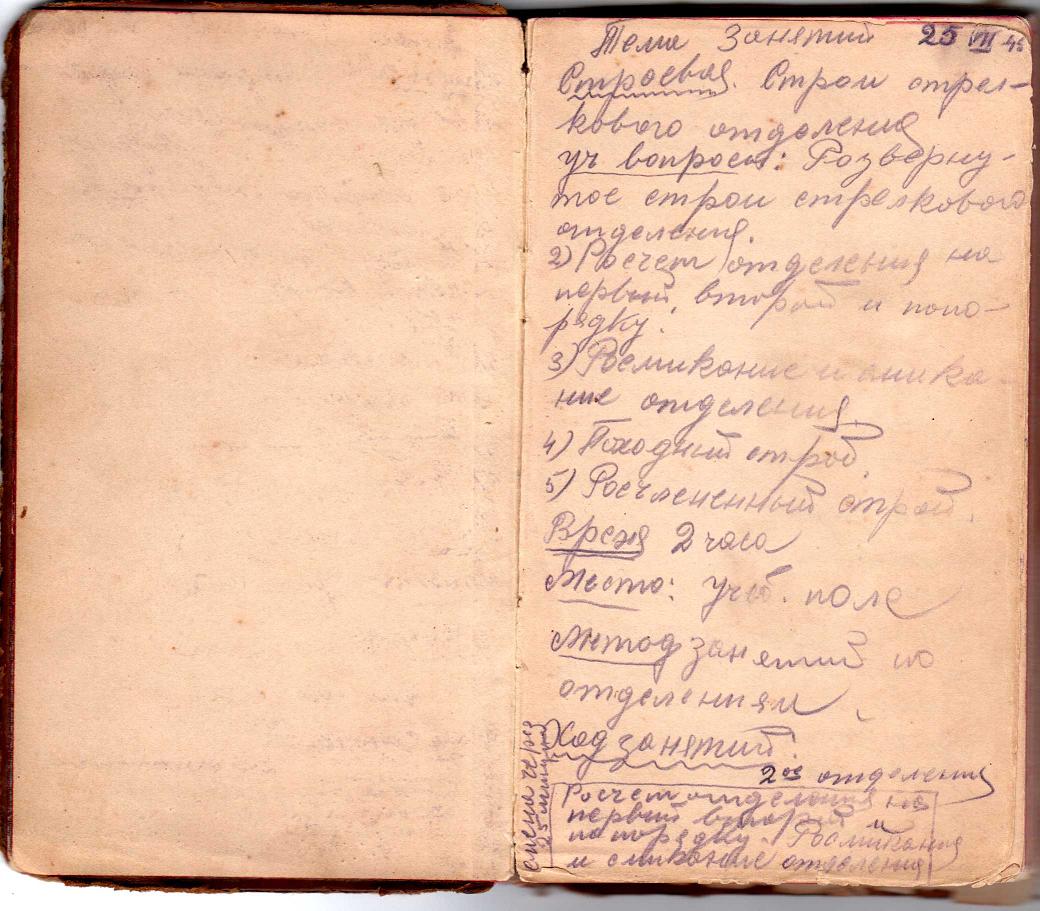 Тема Занятий 25 VII 45
Строевая. Строи стрел-
кового отделения
уч вопросы: Розверну-
тое строи стрелкового
отделения.
2) Росчет отделения на
первый, второй и попо-
рядку.
3) Росмикание и смика-
ние отделения.
4) Походный строй.
5) Росчлененный строй.
Время 2 часа
Место: учеб. поле
Метод занятий по
отделениям.
Ход занятий:
2ое отделения
Росчет отделения на
первый второй и
по порядку. Росмикания
и смикание отделения
смена через
25 минут